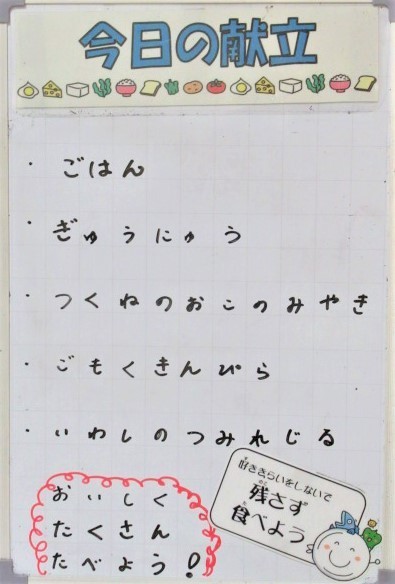 今日の献立
・ごはん
・ぎゅうにゅう
・つくねのおこのみやき
・ごもくきんぴら
・いわしのつみれじる
おいしく
たくさん
たべよう!
好ききらいをしないで
残さず
食べよう。